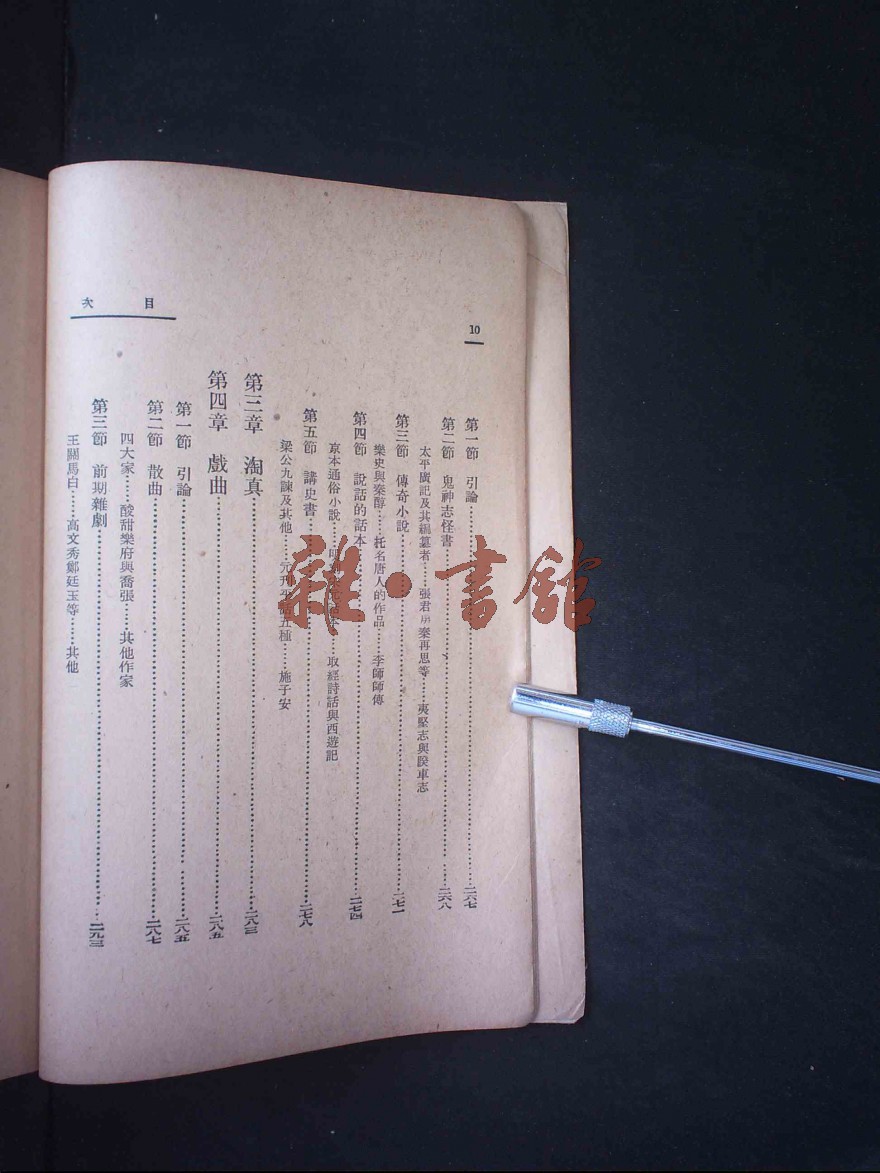 目次
10
第一節 引論……二六七
第二節 鬼神志怪書……二六八
太平廣記及其編纂者……張君房秦再思等……夷堅志與睽車志
第三節 傳奇小說……二七一
樂史與秦醇……托名唐人的作品……李師師傳
第四節 說話的話本……二七四
京本通俗小說……取經詩話與西遊記
第五節 講史書……二七八
梁公九諫及其他……元刊平話五種……施子安
第三章 淘真……二八三
第四章 戲曲……二八五
第一節 引論……二八五
第二節 散曲……二八七
四大家……酸甜樂府與喬張……其他作家
第三節 前期雜劇……二九三
王關馬白……高文秀鄭廷玉等……其他
雜·書館